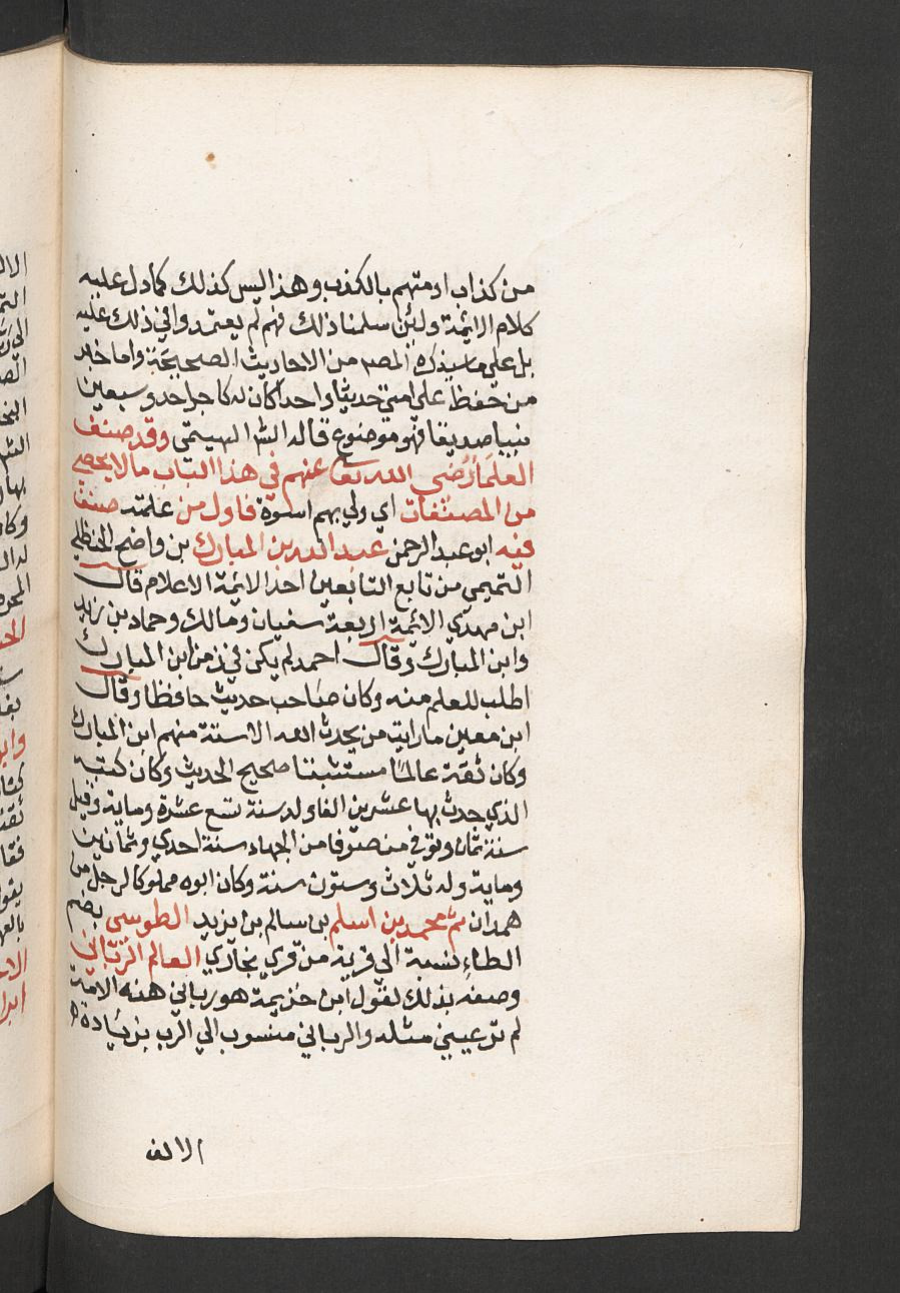 من كذاب او متهم بالكذب وهذا ليس كذلك كما دل عليه
كلام الائمة ولئن سلمنا ذلك فهم لم يعتمدوا في ذلك عليه
بل علي ما سيذكره المصـ من الاحاديث الصحيحة واما خبر
من حفظ علي امتي حديثا واحدا كان له كاجر احد وسبعين
نبيا صديقا فهو موضوع قاله الشـ الهيتمي وقد صنف
العلما رضي الله تعا عنهم في هذا الباب ما لا يحصي
من المصنفات اي ولي بهم اسوة فاول من علمته صنف
فيه ابو عبد الرحمن عبد الله بن المبارك بن واضح الحنظلي
التميمي من تابع التابعين احد الائمة الاعلام قال
ابن مهدي الائمة اربعة سفيان ومالك وحماد بن زيد
وابن المبارك وقال احمد لم يكن في زمن ابن المبارك
اطلب للعلم منه وكان صاحب حديث حافظا وقال
ابن معين ما رايت من يحدث لله الا ستة منهم ابن المبارك
وكان ثقة عالما مستثبتا صحيح الحديث وكان كتبه
الذي حدث بها عشرين الفا ولد سنة تسع عشرة وماية وقيل
سنة ثمان وتوفي منصرفا من الجهاد سنة احدي وثمانين
وماية وله ثلاث وستون سنة وكان ابوه مملوكا لرجل من
همدان ثم محمد بن اسلم بن سالم بن يزيد الطوسي بضم
الطاء نسبة الي قرية من قري بخاري العالم الرباني
وصفه بذلك لقول ابن خزيمة هو رباني هذه الامة
لم تر عيني مثله والرباني منسوب الي الرب بزيادة
الالف
الالـ